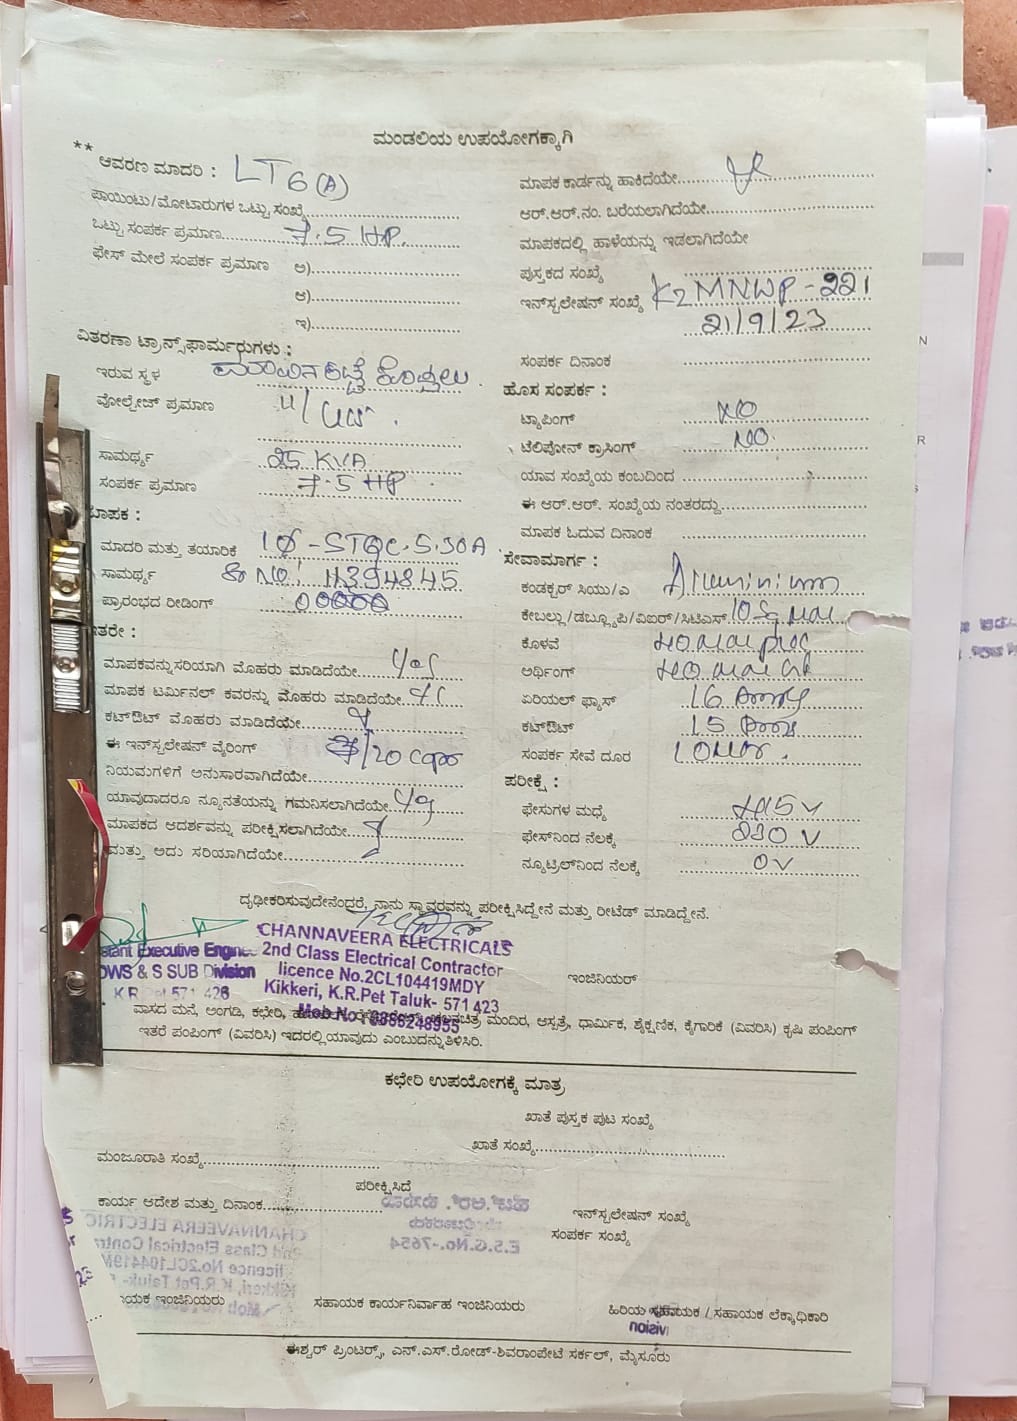 ಮಂಡಲಿಯ ಉಪಯೋಗಕ್ಕಾಗಿ
** ಆವರಣ ಮಾದರಿ : LT 6 (A)
ಪಾಯಿಂಟು/ಮೋಟಾರುಗಳ ಒಟ್ಟು ಸಂಖ್ಯೆ
ಒಟ್ಟು ಸಂಪರ್ಕ ಪ್ರಮಾಣ 7.5 HP.
ಫೇಸ್ ಮೇಲೆ ಸಂಪರ್ಕ ಪ್ರಮಾಣ ಅ)
ಆ)
ಇ)
ವಿತರಣಾ ಟ್ರಾನ್ಸ್‌ಫಾರ್ಮರುಗಳು :
ಇರುವ ಸ್ಥಳ
ವೋಲ್ಟೇಜ್ ಪ್ರಮಾಣ
ಸಾಮರ್ಥ್ಯ 25 KVA
ಸಂಪರ್ಕ ಪ್ರಮಾಣ 7.5 HP
ಮಾಪಕ :
ಮಾದರಿ ಮತ್ತು ತಯಾರಿಕೆ 1Ø-STQC.5.30A
ಸಾಮರ್ಥ್ಯ No: 11394845
ಪ್ರಾರಂಭದ ರೀಡಿಂಗ್ 00000
ಇತರೇ :
ಮಾಪಕವನ್ನು ಸರಿಯಾಗಿ ಮೊಹರು ಮಾಡಿದೆಯೇ Yes
ಮಾಪಕ ಟರ್ಮಿನಲ್ ಕವರನ್ನು ಮೊಹರು ಮಾಡಿದೆಯೇ
ಕಟ್‌ಔಟ್ ಮೊಹರು ಮಾಡಿದೆಯೇ
ಈ ಇನ್‌ಸ್ಟಲೇಷನ್ ವೈರಿಂಗ್
ನಿಯಮಗಳಿಗೆ ಅನುಸಾರವಾಗಿದೆಯೇ
ಯಾವುದಾದರೂ ನ್ಯೂನತೆಯನ್ನು ಗಮನಿಸಲಾಗಿದೆಯೇ
ಮಾಪಕದ ಆದರ್ಶವನ್ನು ಪರೀಕ್ಷಿಸಲಾಗಿದೆಯೇ
ಮತ್ತು ಅದು ಸರಿಯಾಗಿದೆಯೇ
ಮಾಪಕ ಕಾರ್ಡನ್ನು ಹಾಕಿದೆಯೇ
ಆರ್.ಆರ್.ನಂ. ಬರೆಯಲಾಗಿದೆಯೇ
ಮಾಪಕದಲ್ಲಿ ಹಾಳೆಯನ್ನು ಇಡಲಾಗಿದೆಯೇ
ಪುಸ್ತಕದ ಸಂಖ್ಯೆ
ಇನ್‌ಸ್ಟಲೇಷನ್ ಸಂಖ್ಯೆ K2MNWP-221
21/9/23
ಸಂಪರ್ಕ ದಿನಾಂಕ
ಹೊಸ ಸಂಪರ್ಕ :
ಟ್ಯಾಪಿಂಗ್ NO
ಟೆಲಿಫೋನ್ ಕ್ರಾಸಿಂಗ್ NO.
ಯಾವ ಸಂಖ್ಯೆಯ ಕಂಬದಿಂದ
ಈ ಆರ್.ಆರ್. ಸಂಖ್ಯೆಯ ನಂತರದ್ದು
ಮಾಪಕ ಓದುವ ದಿನಾಂಕ
ಸೇವಾಮಾರ್ಗ :
ಕಂಡಕ್ಟರ್ ಸಿಯು/ಎ Aluminium
ಕೇಬಲ್ಲು/ಡಬ್ಲ್ಯೂಪಿ/ವಿಐಆರ್/ಸಿಟಿಎಸ್ 10 Sq mm
ಕೊಳವೆ
ಅರ್ಥಿಂಗ್
ಏರಿಯಲ್ ಫ್ಯೂಸ್ 16 Amp
ಕಟ್‌ಔಟ್ 15 Amp
ಸಂಪರ್ಕ ಸೇವೆ ದೂರ
ಪರೀಕ್ಷೆ :
ಫೇಸುಗಳ ಮಧ್ಯೆ 415 V
ಫೇಸ್‌ನಿಂದ ನೆಲಕ್ಕೆ 230 V
ನ್ಯೂಟ್ರಲ್‌ನಿಂದ ನೆಲಕ್ಕೆ 0 V
ದೃಢೀಕರಿಸುವುದೇನೆಂದರೆ, ನಾನು ಸ್ಥಾವರವನ್ನು ಪರೀಕ್ಷಿಸಿದ್ದೇನೆ ಮತ್ತು ರೀಟೆಡ್ ಮಾಡಿದ್ದೇನೆ.
stant Executive Engineer
OWS & S SUB Division
K.R.Pet 571 426
CHANNAVEERA ELECTRICALS
2nd Class Electrical Contractor
licence No.2CL104419MDY
Kikkeri, K.R.Pet Taluk- 571 423
Mob No :
ಇಂಜಿನಿಯರ್
ವಾಸದ ಮನೆ, ಅಂಗಡಿ, ಕಛೇರಿ, ಚಲನಚಿತ್ರ ಮಂದಿರ, ಆಸ್ಪತ್ರೆ, ಧಾರ್ಮಿಕ, ಶೈಕ್ಷಣಿಕ, ಕೈಗಾರಿಕೆ (ವಿವರಿಸಿ) ಕೃಷಿ ಪಂಪಿಂಗ್
ಇತರೆ ಪಂಪಿಂಗ್ (ವಿವರಿಸಿ) ಇದರಲ್ಲಿ ಯಾವುದು ಎಂಬುದನ್ನು ತಿಳಿಸಿರಿ.
ಕಛೇರಿ ಉಪಯೋಗಕ್ಕೆ ಮಾತ್ರ
ಖಾತೆ ಪುಸ್ತಕ ಪುಟ ಸಂಖ್ಯೆ
ಖಾತೆ ಸಂಖ್ಯೆ
ಮಂಜೂರಾತಿ ಸಂಖ್ಯೆ
ಪರೀಕ್ಷಿಸಿದೆ
ಕಾರ್ಯ ಆದೇಶ ಮತ್ತು ದಿನಾಂಕ
ಇನ್‌ಸ್ಟಲೇಷನ್ ಸಂಖ್ಯೆ
ಸಂಪರ್ಕ ಸಂಖ್ಯೆ
ಯಕ ಇಂಜಿನಿಯರು
ಸಹಾಯಕ ಕಾರ್ಯನಿರ್ವಾಹ ಇಂಜಿನಿಯರು
ಹಿರಿಯ ಸಹಾಯಕ / ಸಹಾಯಕ ಲೆಕ್ಕಾಧಿಕಾರಿ
ಈಶ್ವರ್ ಪ್ರಿಂಟರ್ಸ್, ಎನ್.ಎಸ್.ರೋಡ್-ಶಿವರಾಂಪೇಟೆ ಸರ್ಕಲ್, ಮೈಸೂರು